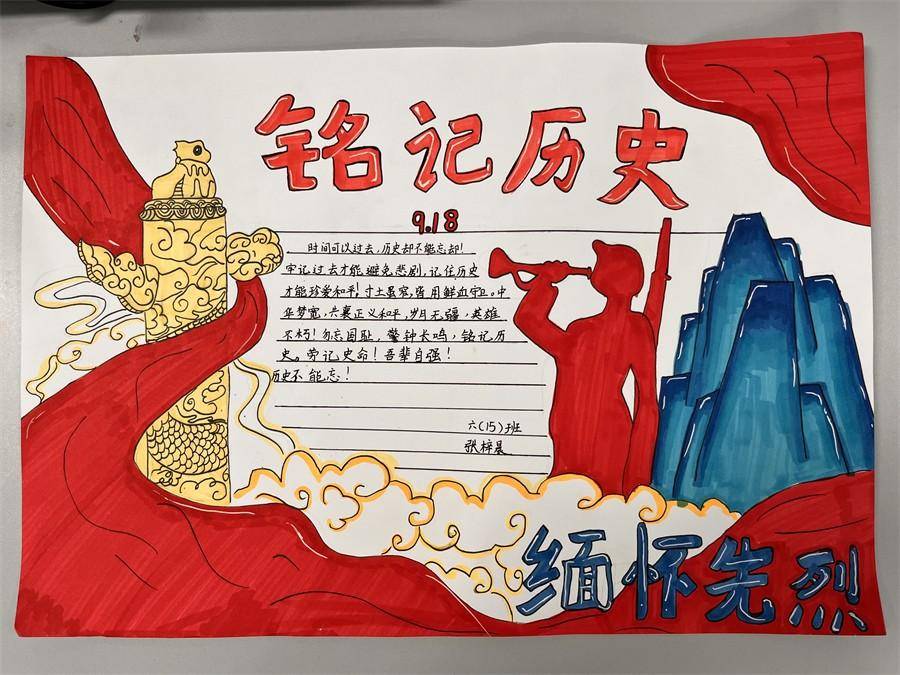 铭记历史
9.18
时间可以过去,历史却不能忘却!
牢记过去才能避免悲剧,记住历史
才能珍爱和平!寸土虽窄,皆用鲜血守卫。中
华梦宽,共襄正义和平,岁月无疆,英雄
不朽!勿忘国耻,警钟长鸣,铭记历
史。劳记史命!吾辈自强!
历史不能忘!
六(15)班
张梓晨
缅怀先烈